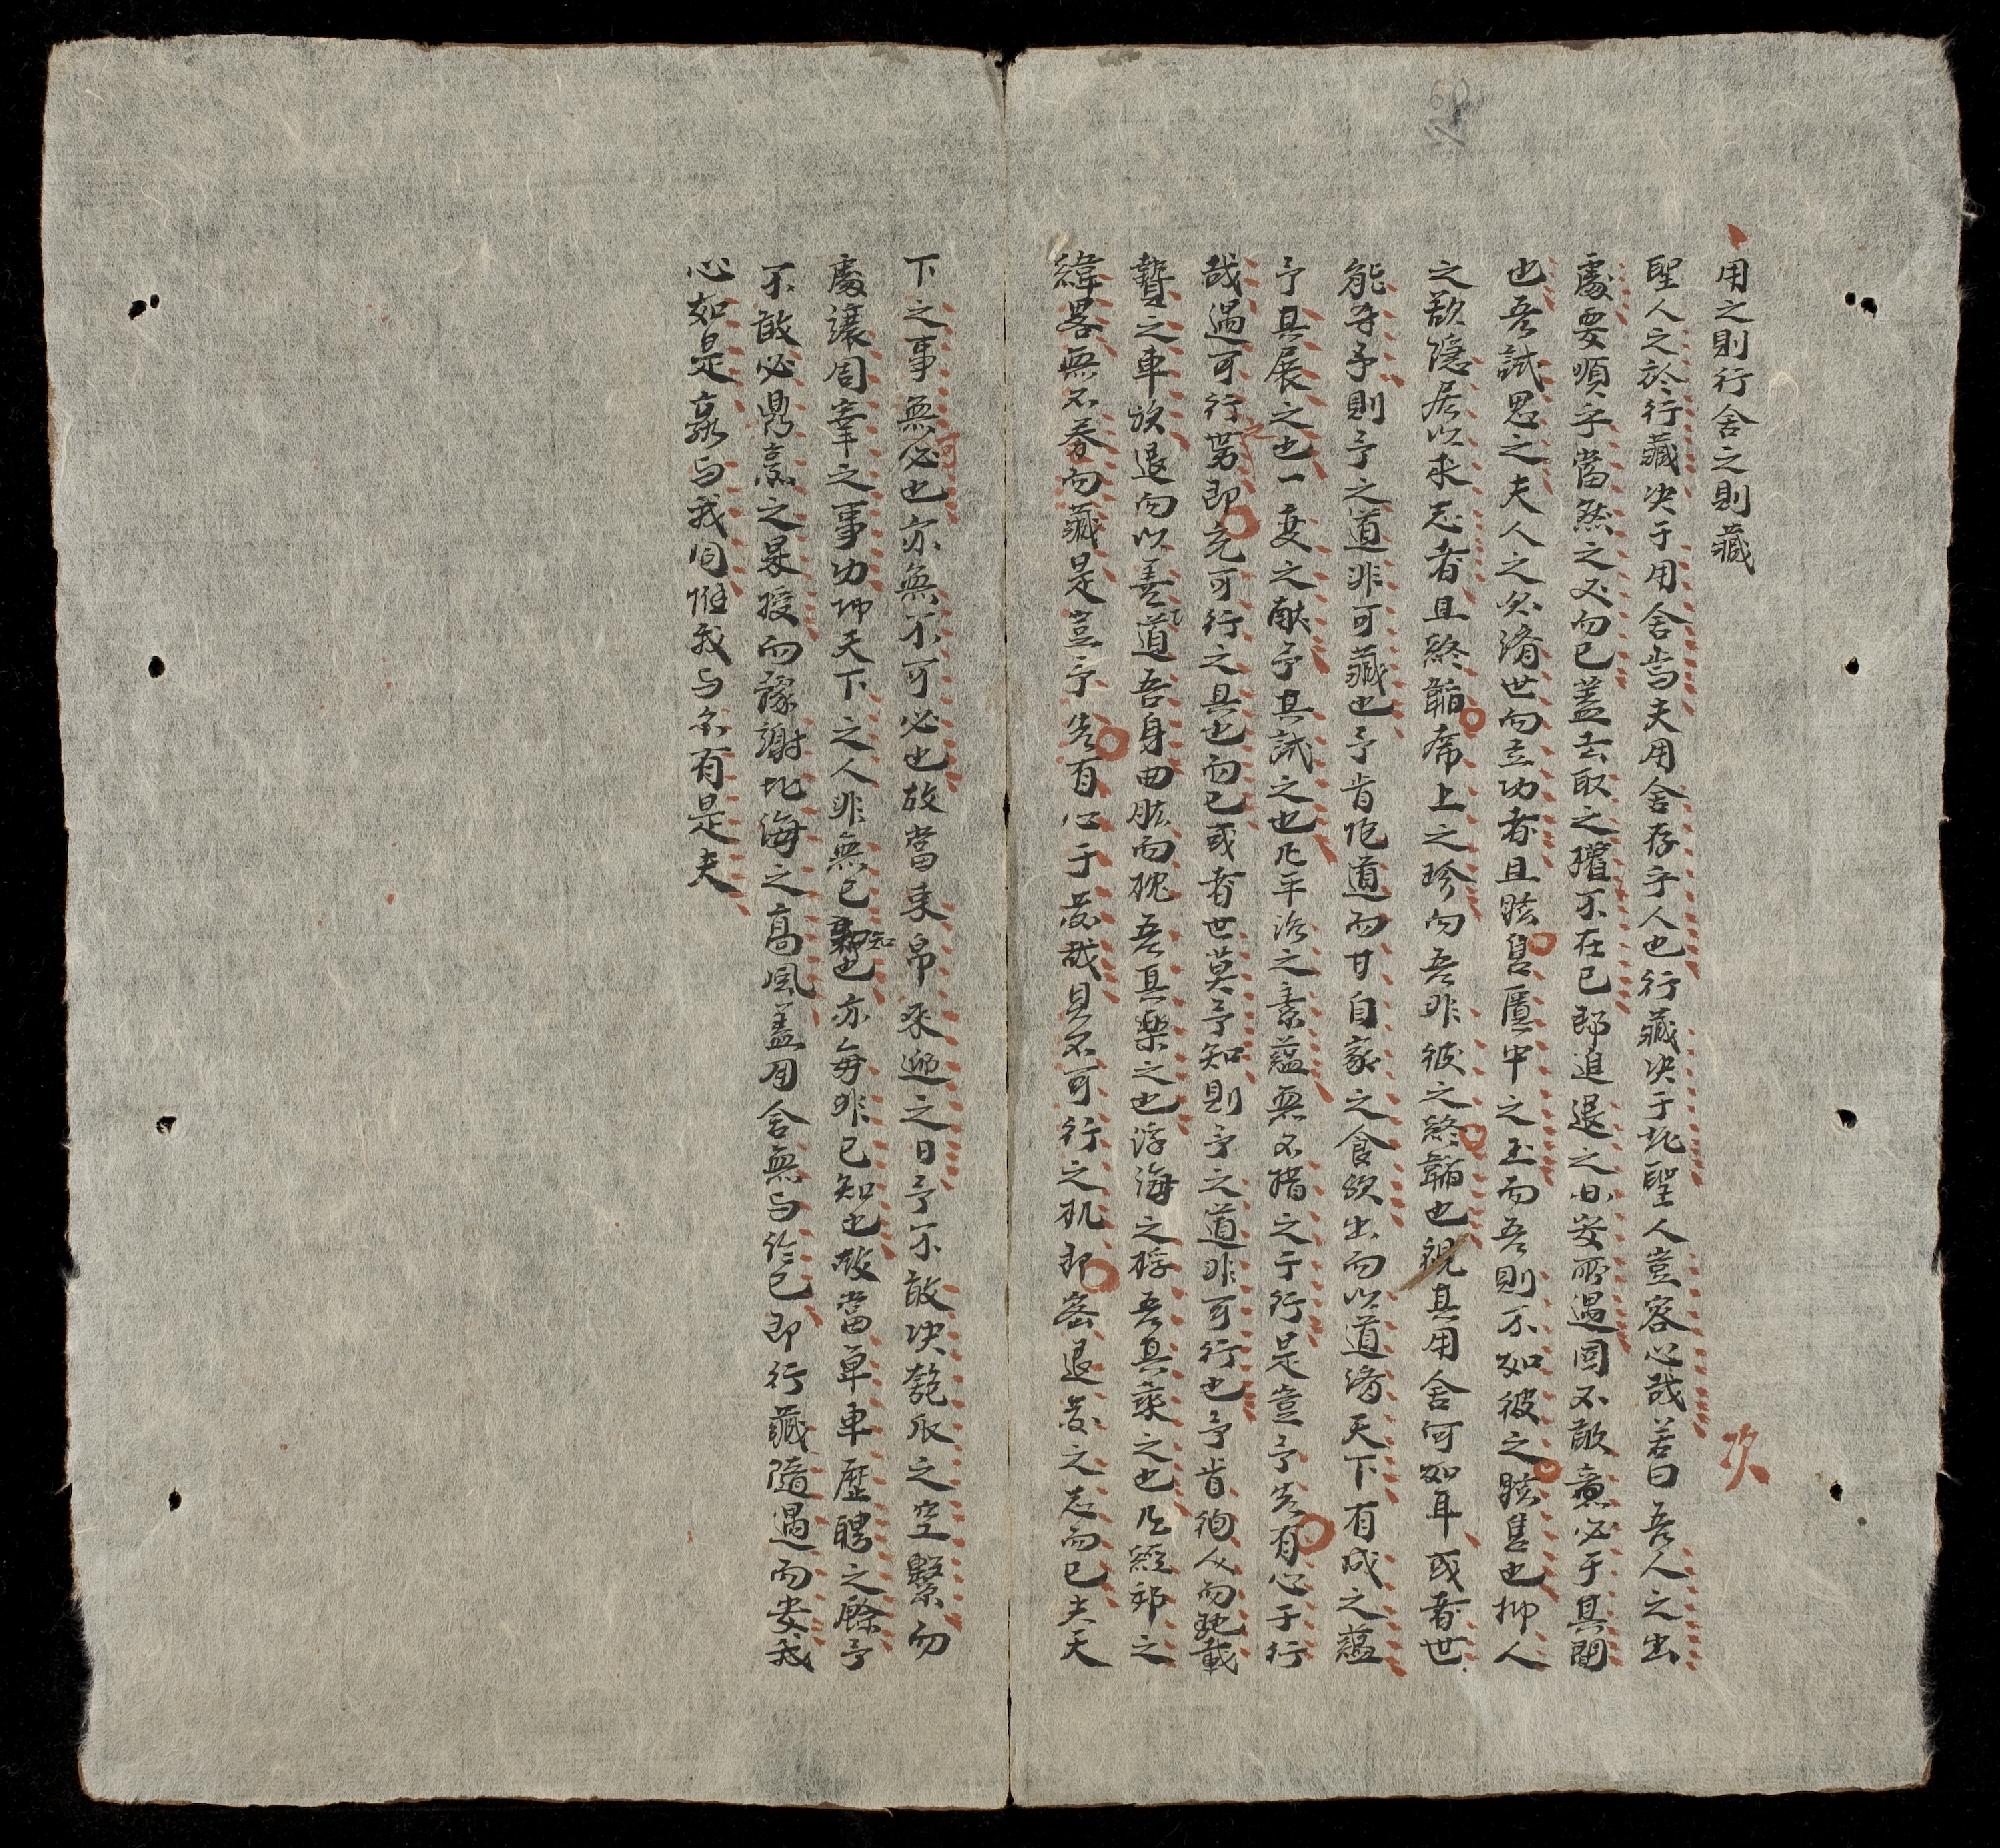 用之則行舍之則藏
聖人之於行藏决于用舍焉夫用舍存乎人也行藏决于此聖人豈容心哉若曰吾人之出
處要順乎當然之又而已蓋去取之權不在己即進退之亦安所遇固不敢意必于其間
也吾試思之夫人之欲濟世而立功者且眩售匱中之玉而吾則不如彼之眩售也抑人
之欲隱居以求志者且終韜席上之珍而吾非彼之終韜也視其用舍何如耳或者世
能予予則予之道非可藏也予肯卷道而甘自家之食欤出而以道濟天下有成之蘊
予其展之也一变之猷予其試之也凡平治之素蘊無不措之于行是豈予先有心于行
哉遇可行第即充可行之具也而已或者世莫予知則予之道非可行也予肯徇人而馳載
贄之車欤退而以善道吾身曲肱而枕吾其樂之也浮海之桴吾其乘之也凡經邦之
緯畧無不卷而藏是豈予先有心于藏哉見不可行之机即密退藏之志而已夫天
下之事無必也亦無不可必也故當束帛來迎之日予不敢决匏瓜之空繫而
處讓周宰之事功仰天下之人非無已知也亦每非已知也故當单車歷聘之餘予
不敢必鼎烹之果授而謝北海之高風蓋用舍無与於己即行藏隨遇而安我
心如是豪与我同惟我与尔有是夫
次
50